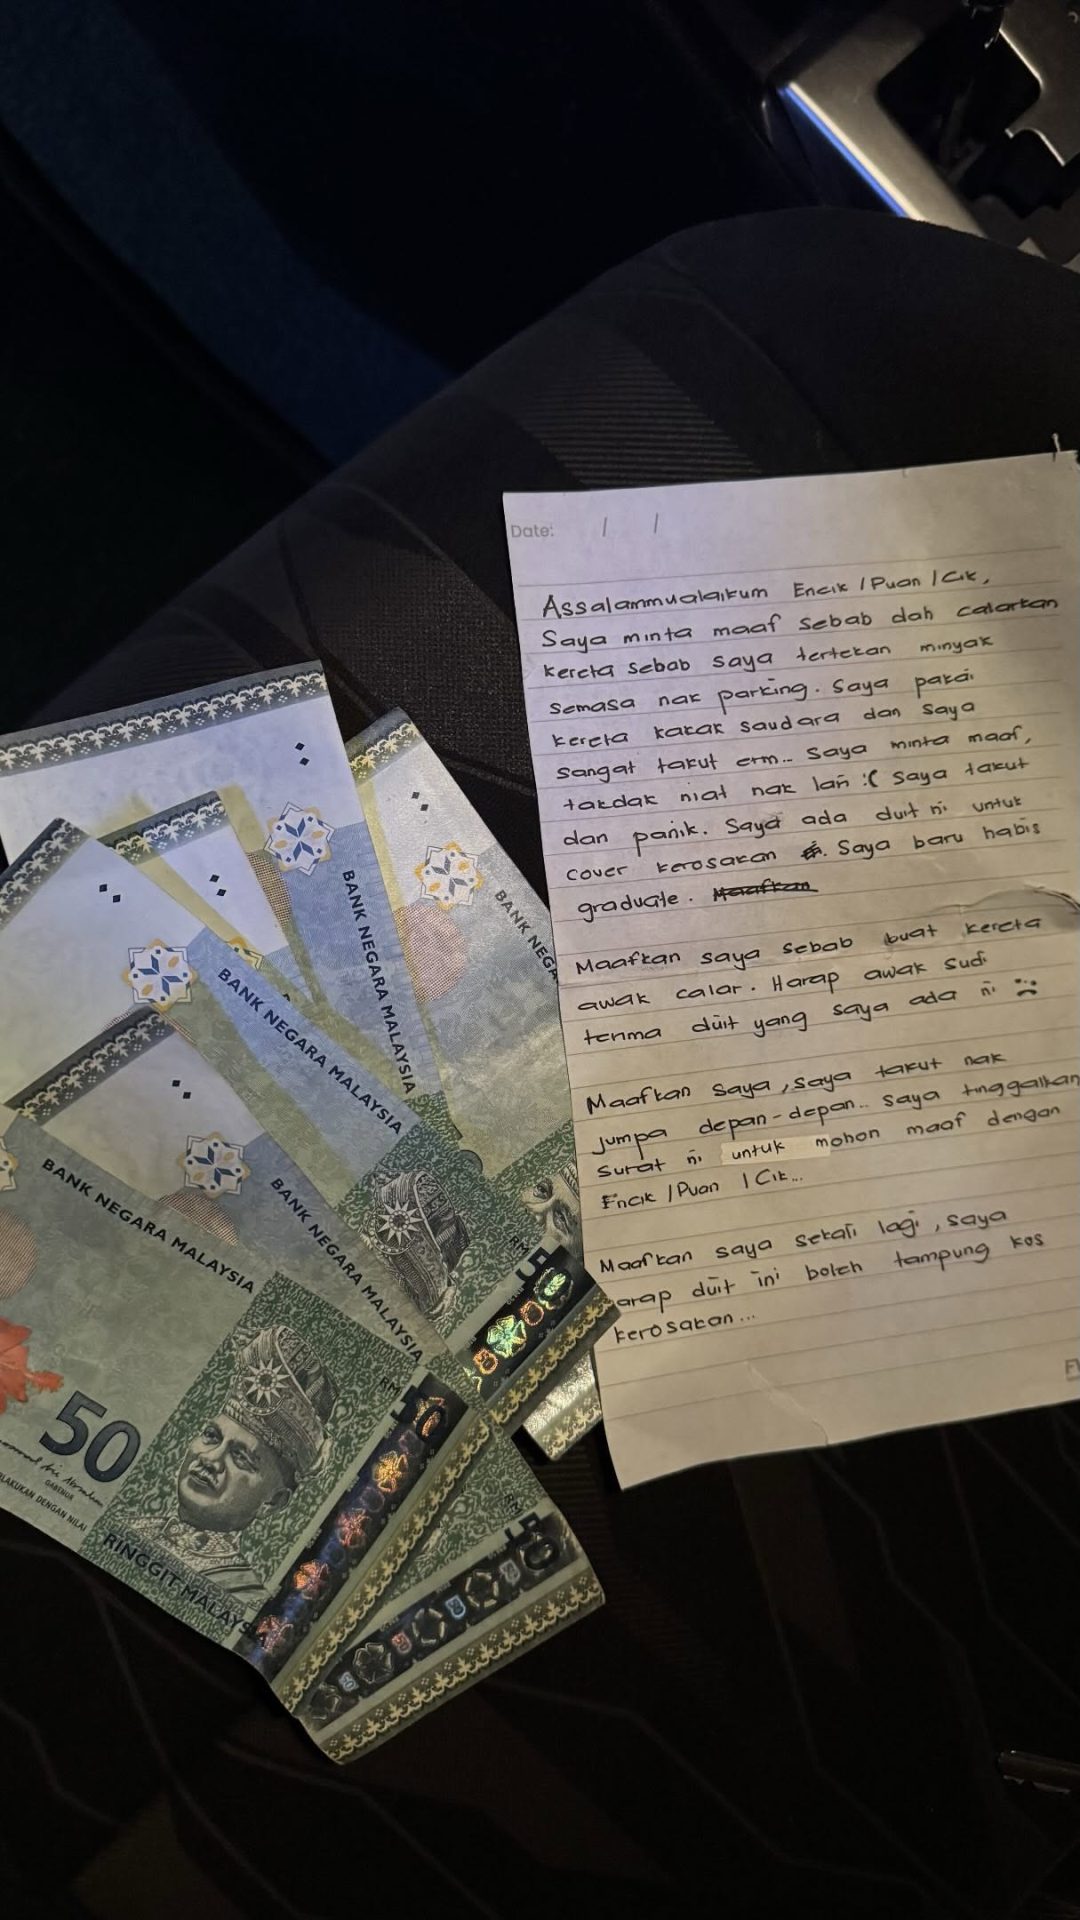 Date: / /
Assalammualaikum Encik / Puan / Cik,
Saya minta maaf sebab dah calarkan
kereta sebab saya tertekan minyak
semasa nak parking. Saya pakai
kereta kakak saudara dan saya
sangat takut erm... Saya minta maaf,
takdak niat nak lari :( Saya takut
dan panik. Saya ada duit ni untuk
cover kerosakan. Saya baru habis
graduate. Maafkan
Maafkan saya sebab buat kereta
awak calar. Harap awak sudi
terima duit yang saya ada ni
Maafkan saya, saya takut nak
jumpa depan-depan... saya tinggalkan
surat ni untuk mohon maaf dengan
Encik / Puan / Cik...
Maafkan saya sekali lagi, saya
harap duit ini boleh tampung kos
kerosakan...
BANK NEGARA MALAYSIA
BANK NEGA
BANK NEGARA MALAYSIA
BANK NEGARA MALAYSIA
BANK NEGARA MALAYSIA
RM 50
RM 50
50
GABENOR
DENGAN NILAI
RINGGIT MALAYSIA
RM 50